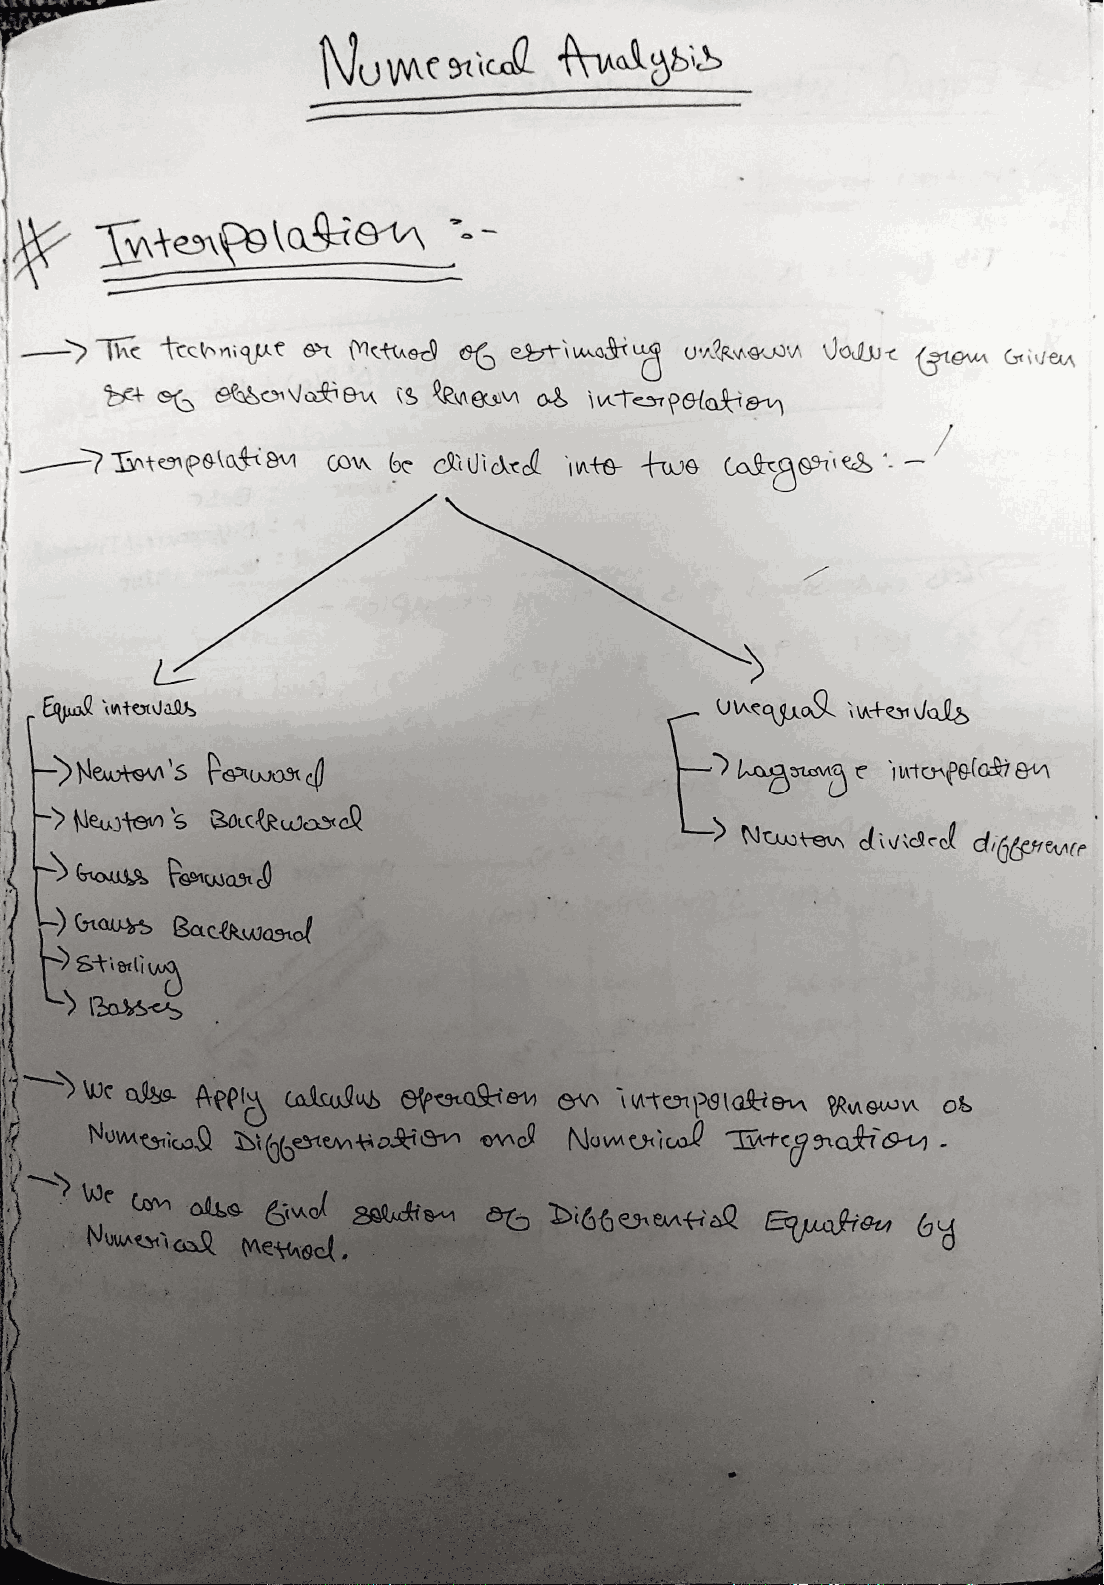 Numerical Analysis
# Interpolation :-
→ The technique or Method of estimating unknown Value from Given
set of observation is known as interpolation
→ Interpolation can be divided into two categories :-
Equal intervals
→ Newton's Forward
→ Newton's Backward
→ Gauss Forward
→ Gauss Backward
→ Stirling
→ Basses
unequal intervals
→ Lagrange interpolation
→ Newton divided difference
→ We also Apply calculus operation on interpolation known as
Numerical Differentiation and Numerical Integration.
→ We can also find solution of Differential Equation by
Numerical Method.